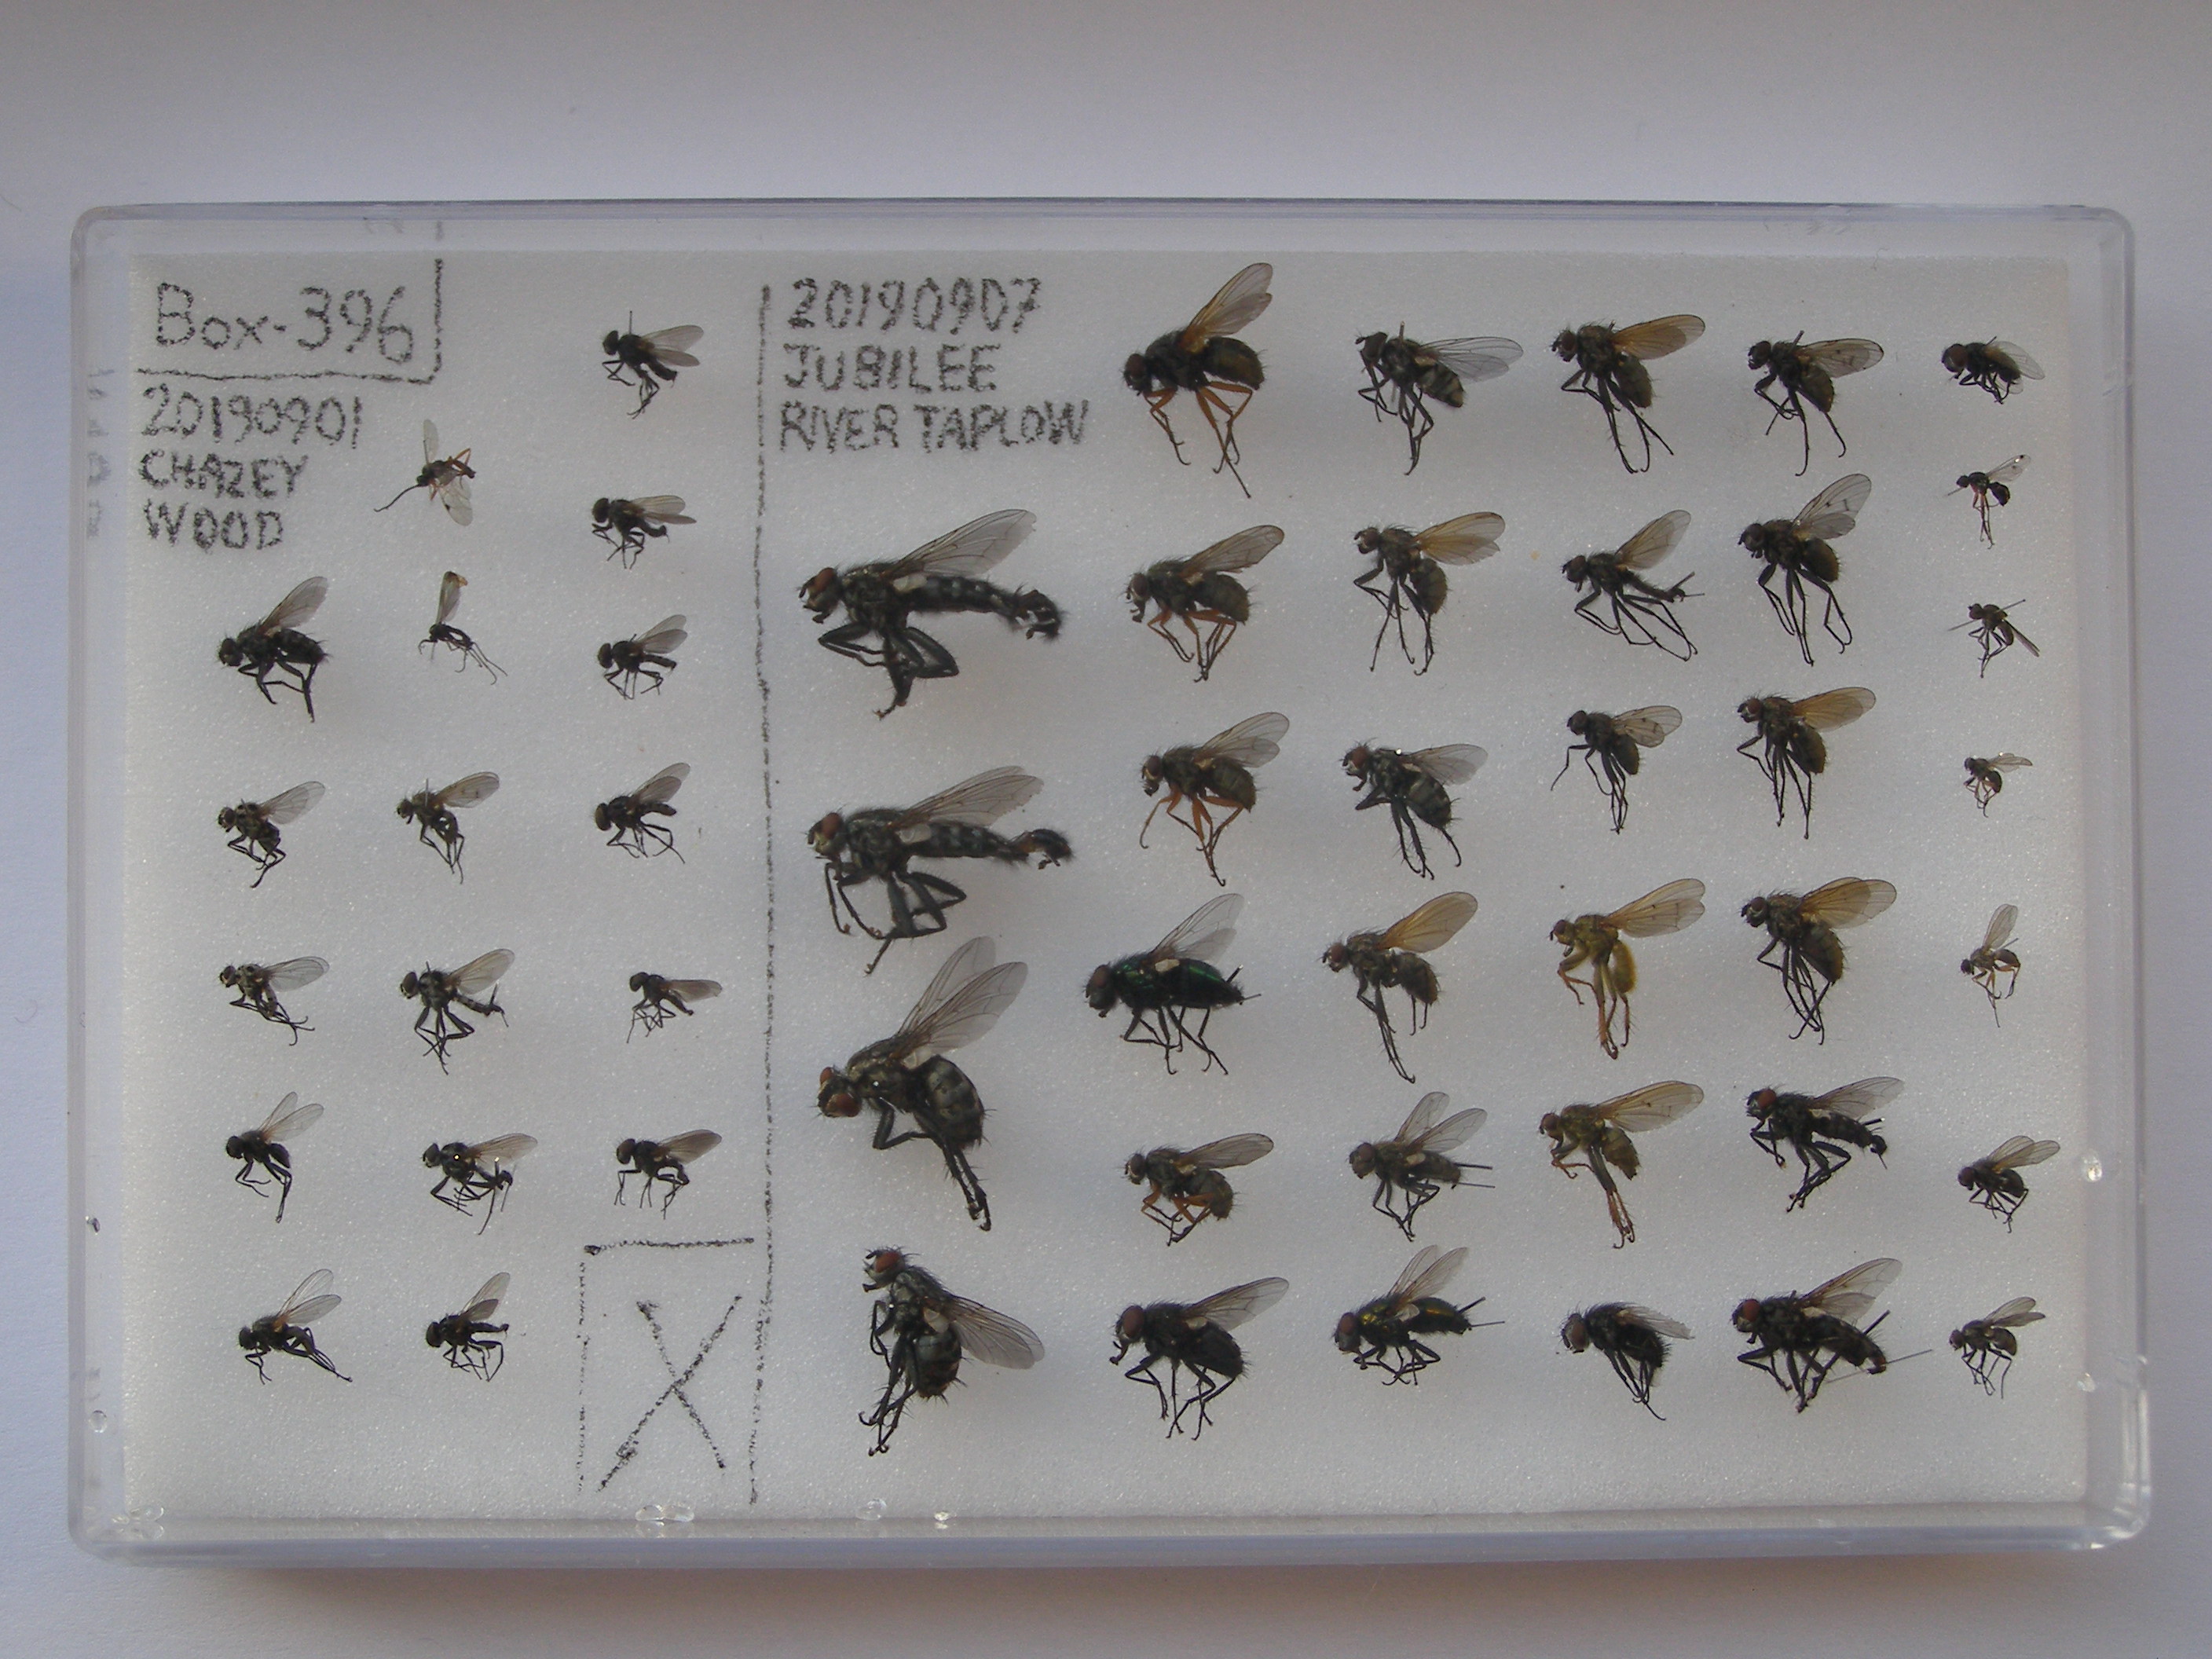 Box-396
20190901
CHAZEY
WOOD
20190907
JUBILEE
RIVER TAPLOW
X